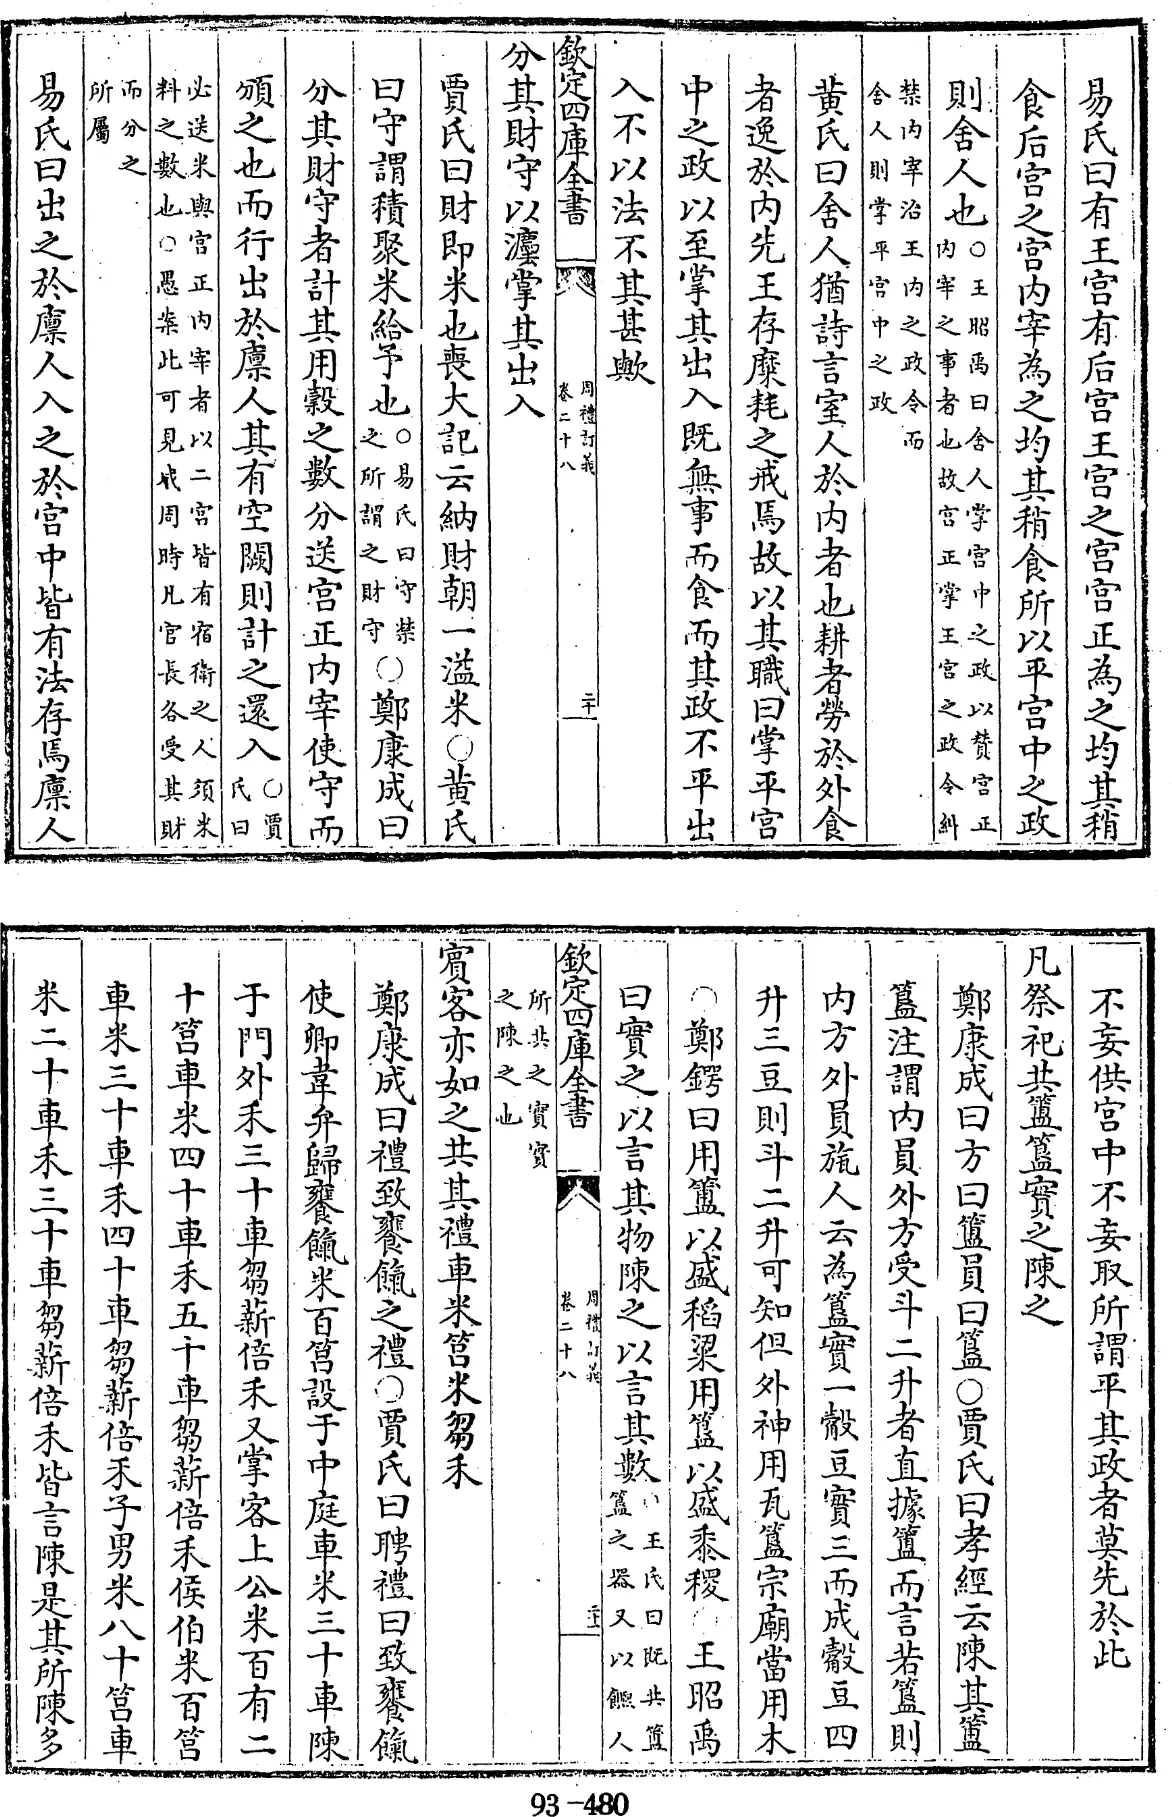 易氏曰有王宫有后宫王宫之宫宫正為之均其稍
食后宫之宫内宰為之均其稍食所以平宫中之政
則舍人也○王昭禹曰舍人掌宫中之政以賛宫正
内宰之事者也故宫正掌王宫之政令糾
禁内宰治王内之政令而
舍人則掌平宫中之政
黄氏曰舍人猶詩言室人於内者也耕者勞於外食
者逸於内先王存糜耗之戒焉故以其職曰掌平宫
中之政以至掌其出入既無事而食而其政不平出
入不以法不其甚歟
欽定四庫全書
周禮訂義
卷二十八
二十
分其財守以灋掌其出入
賈氏曰財即米也喪大記云納財朝一溢米○黄氏
曰守謂積聚米給予也○易氏曰守禁
之所謂之財守○鄭康成曰
分其財守者計其用穀之數分送宫正内宰使守而
頒之也而行出於廩人其有空闕則計之還入○賈
氏曰
必送米與宫正内宰者以二宫皆有宿衛之人須米
料之數也○愚案此可見成周時凡官長各受其財
而分之
所屬
易氏曰出之於廩人入之於宫中皆有法存焉廩人
不妄供宫中不妄取所謂平其政者莫先於此
凡祭祀共簠簋實之陳之
鄭康成曰方曰簠員曰簋○賈氏曰孝經云陳其簠
簋注謂内員外方受斗二升者直據簠而言若簋則
内方外員旊人云為簋實一觳豆實三而成觳豆四
升三豆則斗二升可知但外神用瓦簋宗廟當用木
○鄭鍔曰用簠以盛稻粱用簋以盛黍稷○王昭禹
曰實之以言其物陳之以言其數○王氏曰既共簠
簋之器又以饎人
所共之實實
之陳之也
欽定四庫全書
周禮訂義
卷二十八
二十一
賓客亦如之共其禮車米筥米芻禾
鄭康成曰禮致饔餼之禮○賈氏曰聘禮曰致饔餼
使卿韋弁歸饔餼米百筥設于中庭車米三十車陳
于門外禾三十車芻薪倍禾又掌客上公米百有二
十筥車米四十車禾五十車芻薪倍禾侯伯米百筥
車米三十車禾四十車芻薪倍禾子男米八十筥車
米二十車禾三十車芻薪倍禾皆言陳是其所陳多
93-480